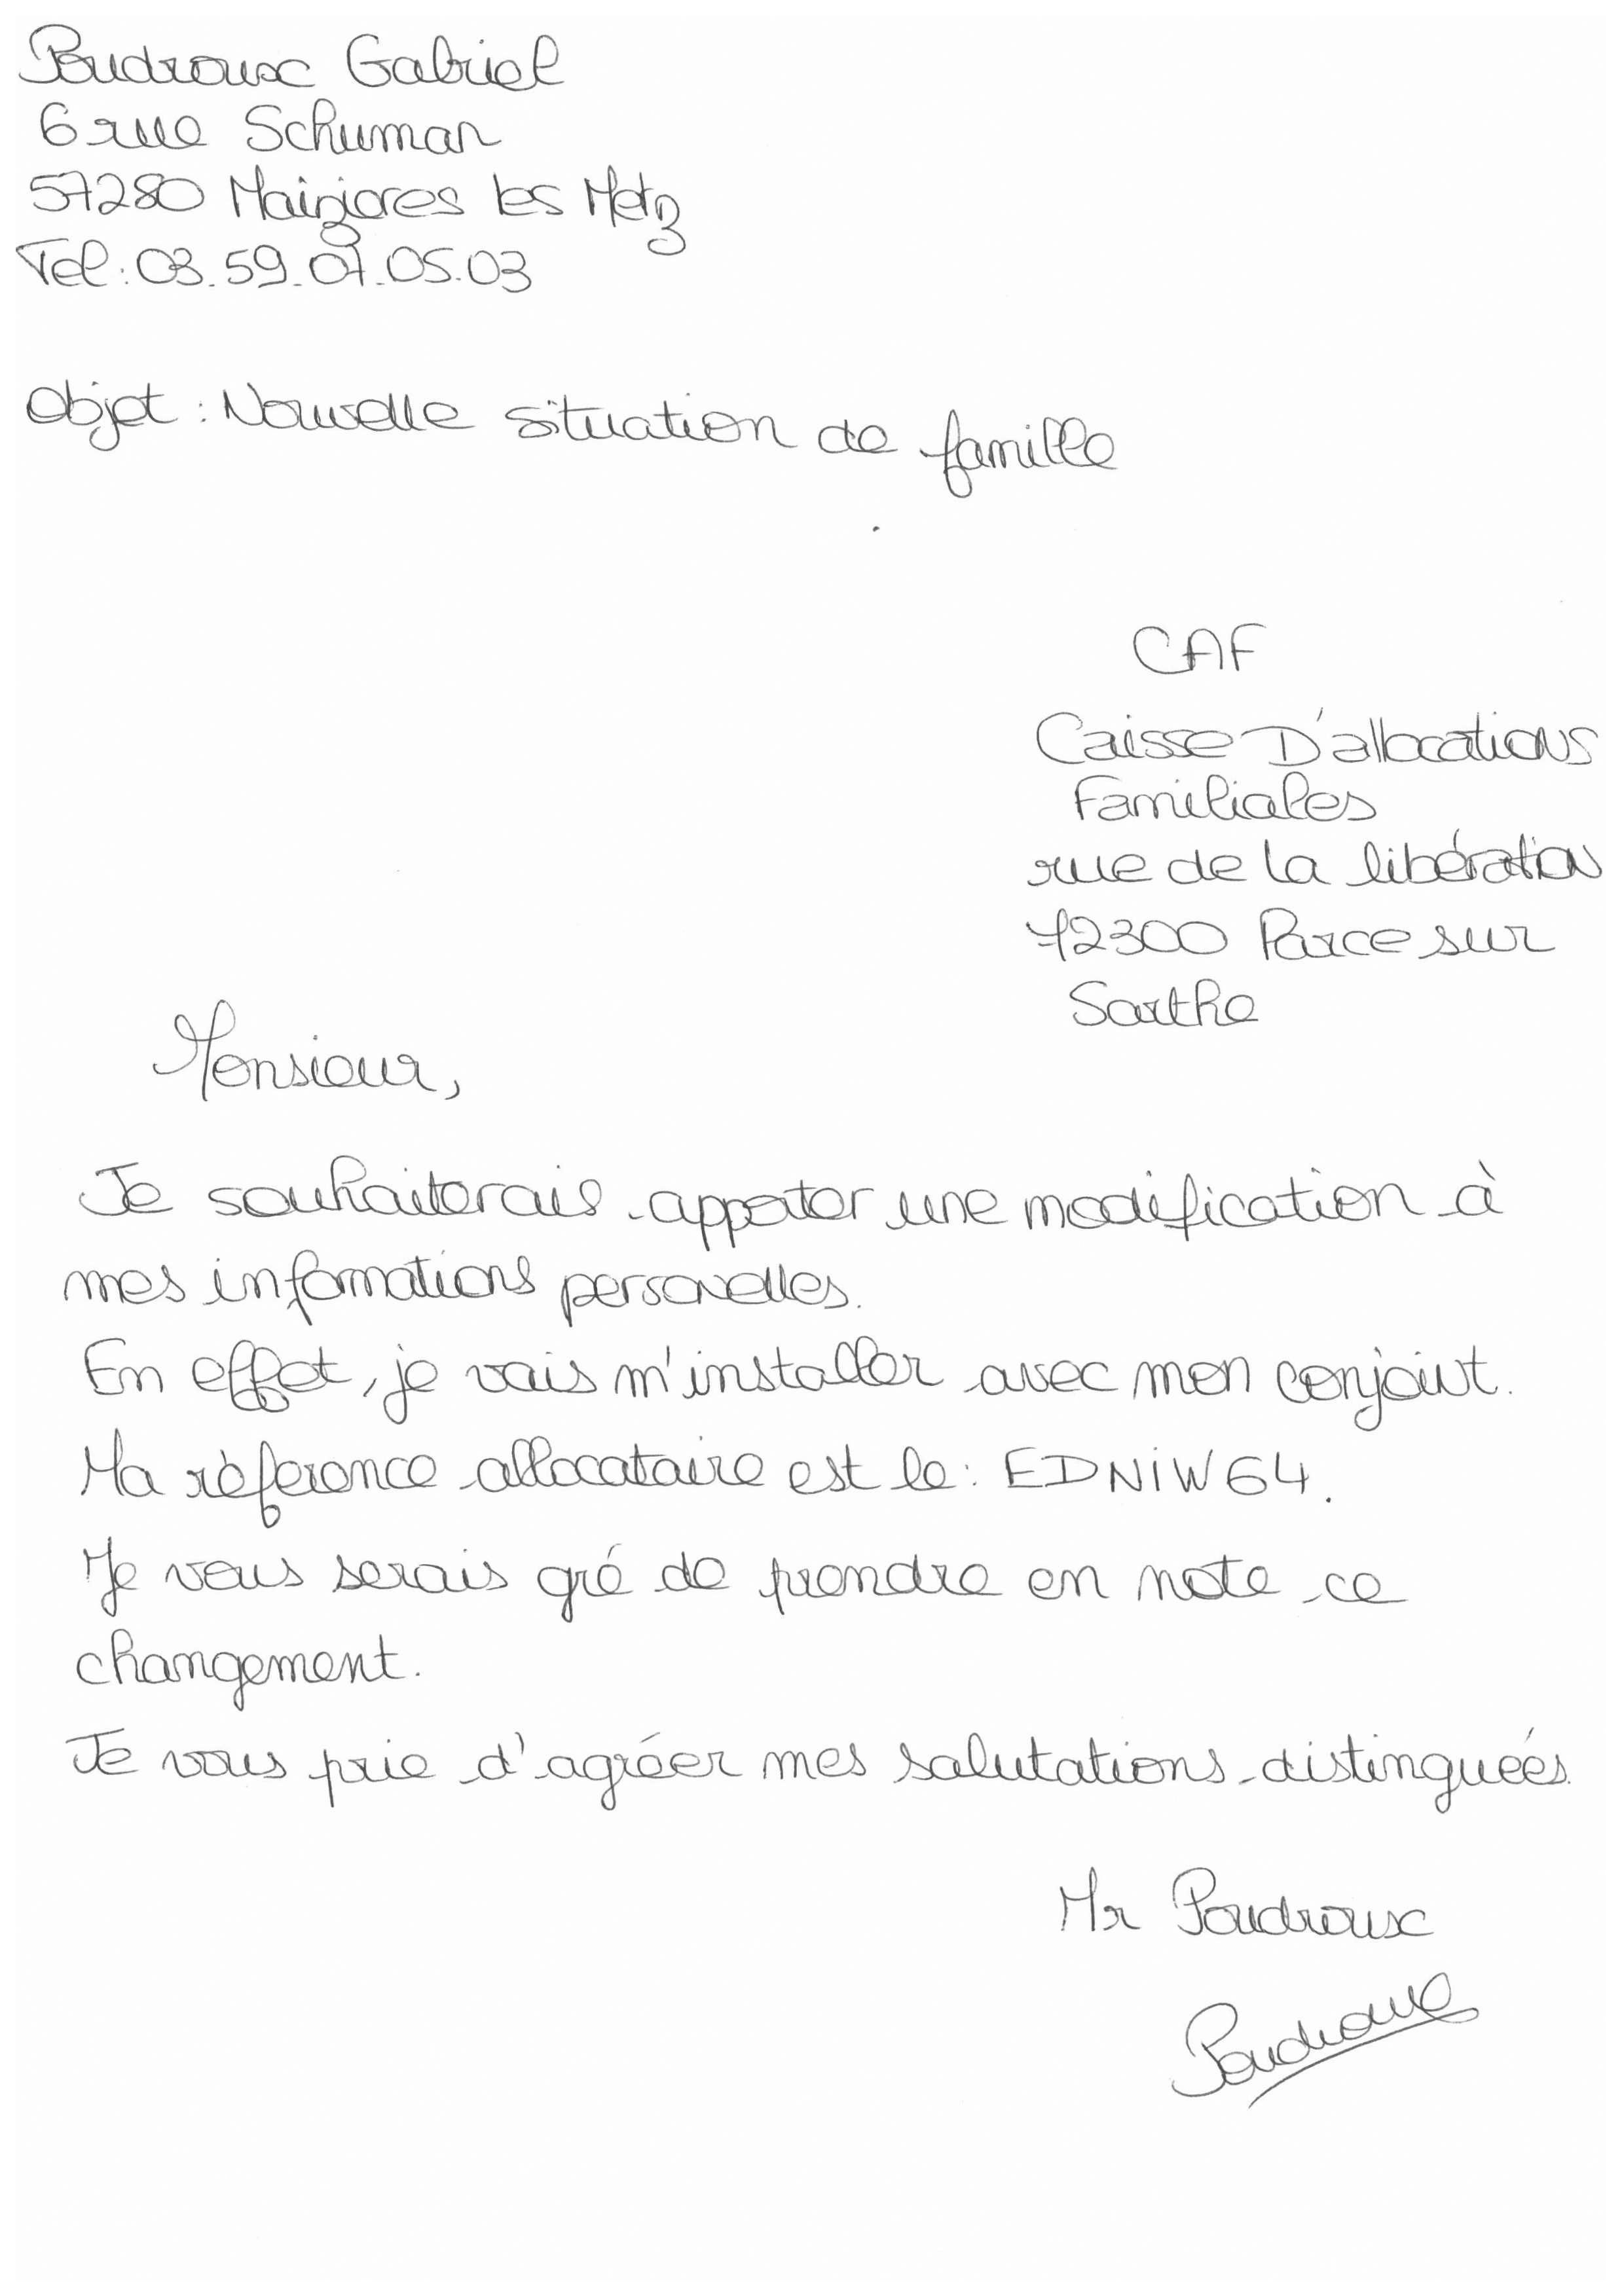 Poudroux Gabriel
6 rue Schuman
57280 Maizieres les Metz
Tel : 03.59.07.05.03
Objet : Nouvelle situation de famille
CAF
Caisse D'allocations
Familiales
rue de la libération
72300 Parce sur
Sarthe
Monsieur,
Je souhaiterais apporter une modification à
mes informations personnelles.
En effet, je vais m'installer avec mon conjoint.
Ma référence allocataire est le : EDNIW64.
Je vous serais gré de prendre en note ce
changement.
Je vous prie d'agréer mes salutations distinguées.
Mr Poudroux
Poudroux